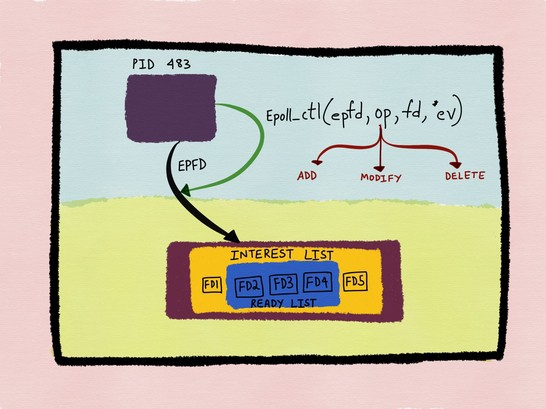 PID 483
Epoll_ctl(epfd, op, fd, *ev)
EPFD
ADD
MODIFY
DELETE
INTEREST LIST
FD1
FD2
FD3
FD4
FD5
READY LIST